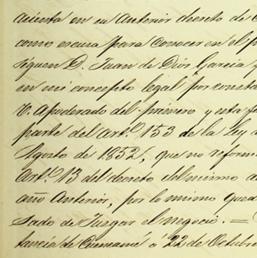 cuenta en su Anterior decreto de C
como escusa para Conocer en el p
siguen D. Juan de Dios Garcia y
en mi concepto legal por consta
v. Apoderado del primero y esta
parte del Artº 153 de la Ley d
Agosto de 1852, que no reform
Artº 13 del decreto del mismo
año Anterior, por lo mismo qued
sado de Juzgar el negocio. =
tancia de 22 de Octubr